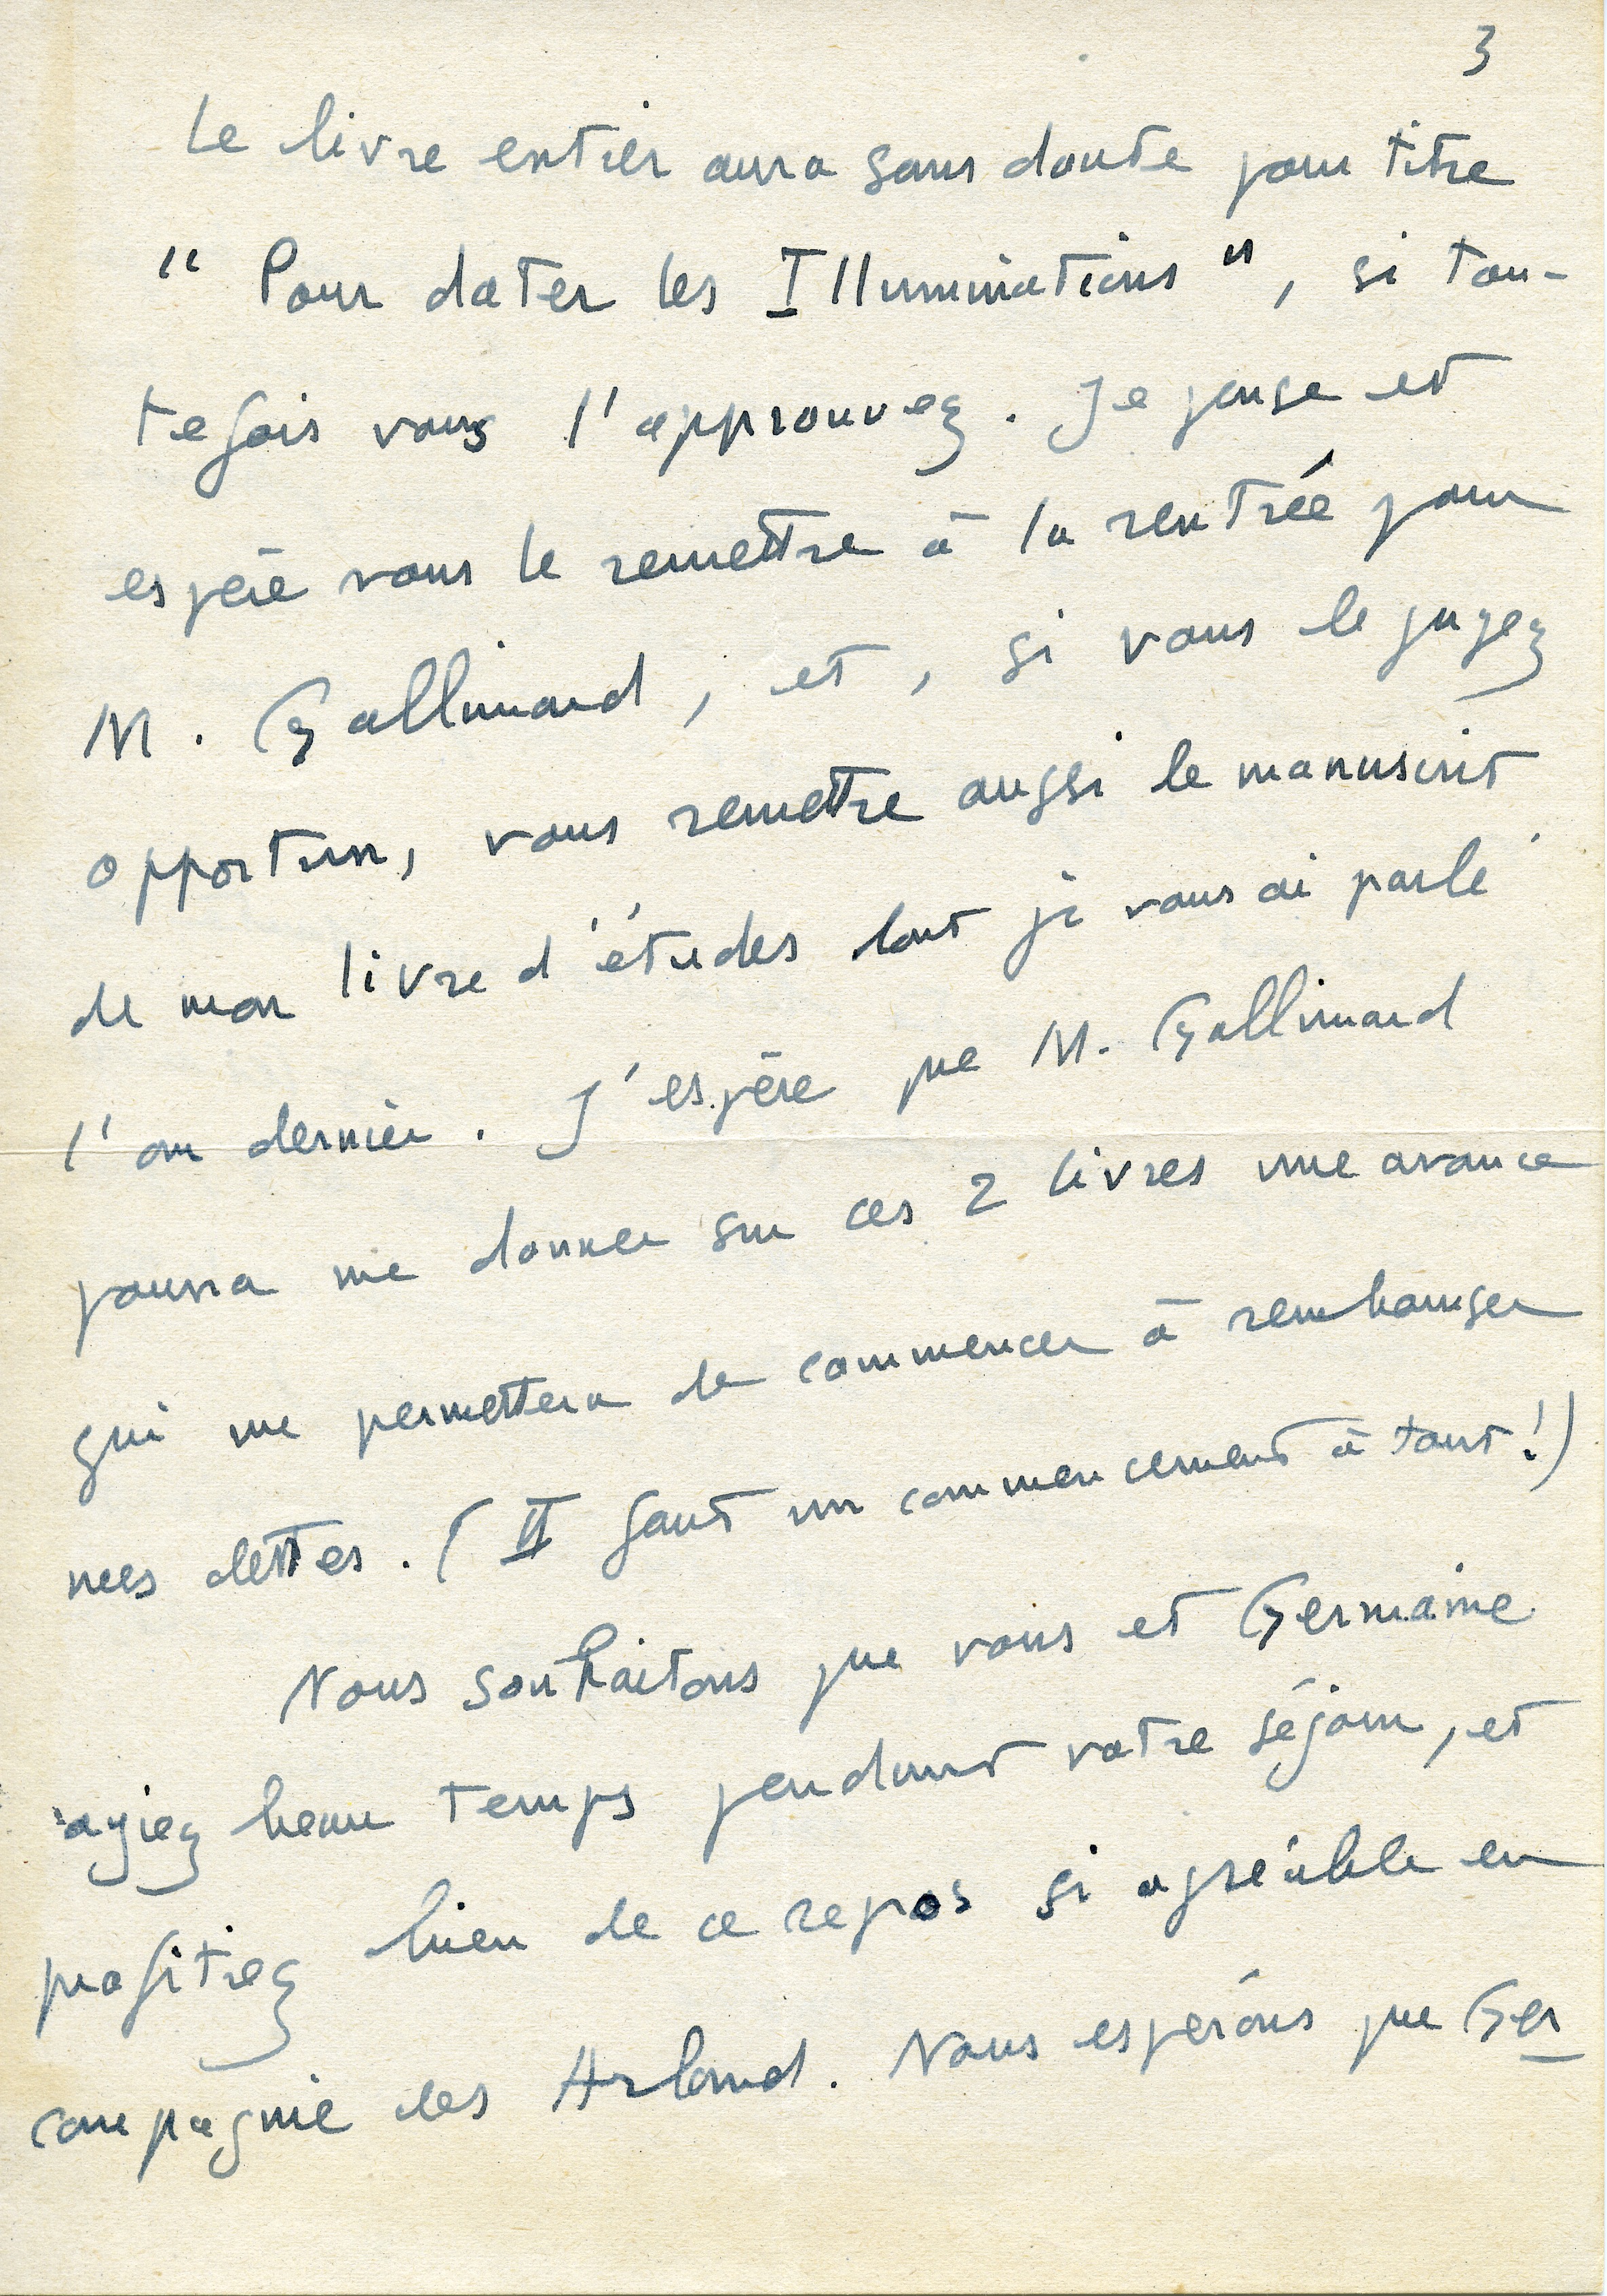 3
Le livre entier aura sans doute pour titre
" Pour dater les Illuminations ", si tou-
tefois vous l'approuvez. Je pense et
espère vous le remettre à la rentrée pour
M. Gallimard, et, si vous le jugez
opportun, vous remettre aussi le manuscrit
de mon livre d'études dont je vous ai parlé
l'an dernier. J'espère que M. Gallimard
pourra me donner sur ces 2 livres une avance
qui me permettera de commencer à rembourser
mes dettes. (Il faut un commencement à tout!)
Nous souhaitons que vous et Germaine
ayiez beau temps pendant votre séjour, et
profitiez bien de ce repos si agréable en
compagnie des Arland. Nous espérons que Ger